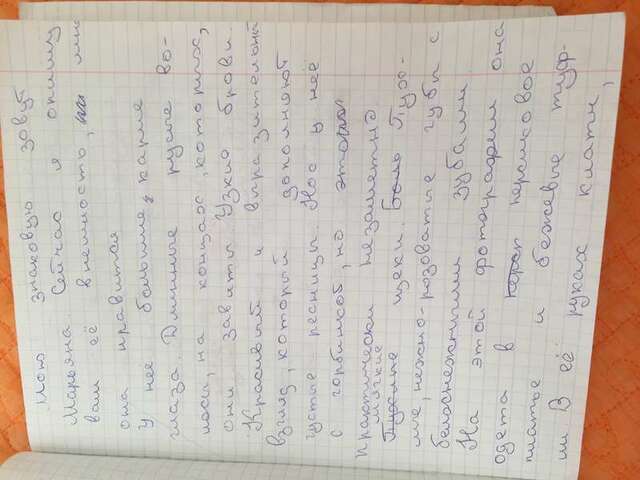 Мою знаковую зовут
Марьяна. Сейчас я опишу
вам её внешность, мне
она нравится
У неё большие, карие
глаза. Длинные русые во-
лосы, на концах, которых,
они завиты. Узкие брови.
Красивый и выразительный
взгляд, который дополняют
густые ресницы. Нос у неё
с горбинкой, но это
практически незаметно.
мягкие
щеки. Пух-
лые, нежно-розоватые губы с
белоснежными зубами.
На этой фотографии она
одета в персиковое
платье и бежевые туф-
ли. В её руках клатч,